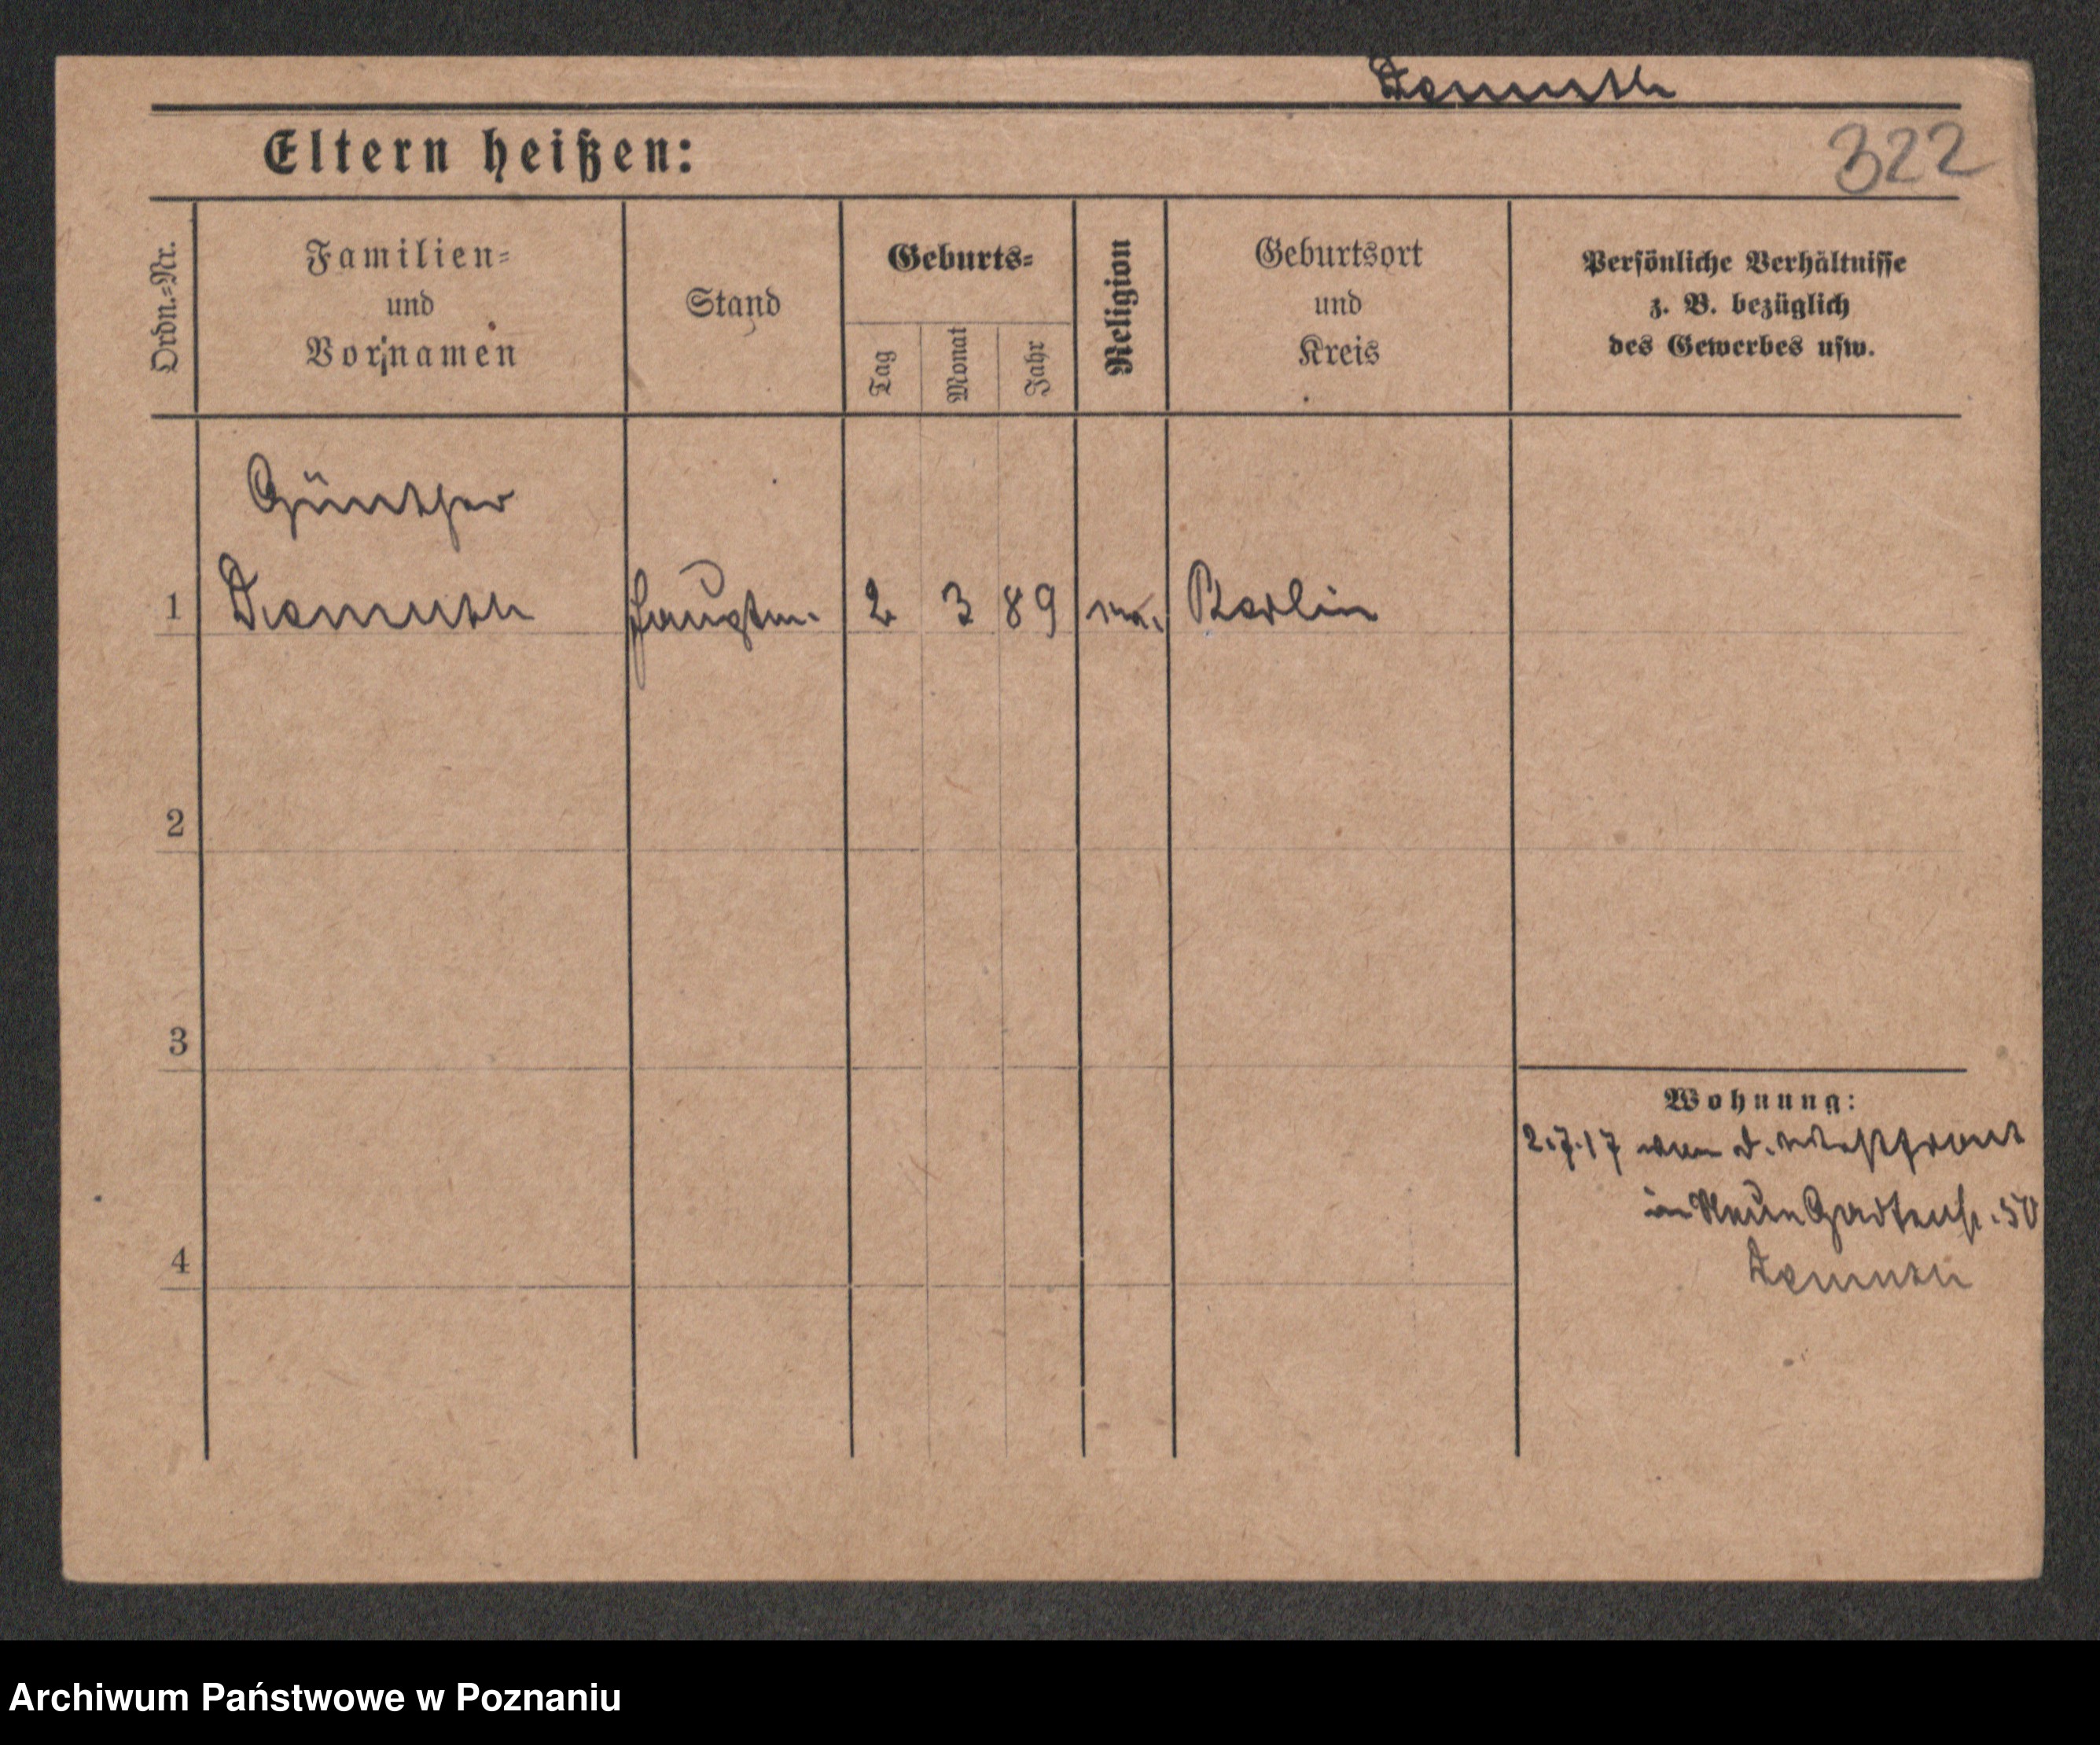 Demuth
Eltern heißen:
322
Ordn.=Nr.
Familien=
und
Vornamen
Stand
Geburts=
Tag
Monat
Jahr
Religion
Geburtsort
und
Kreis
Persönliche Verhältnisse
z. B. bezüglich
des Gewerbes usw.
Günther
1 Demuth Hauptm. 2 3 89 Berlin
2
3
4
Wohnung:
2.7.17 von d. Westfront
in Neue Gartenstr. 50
Demuth
Archiwum Państwowe w Poznaniu